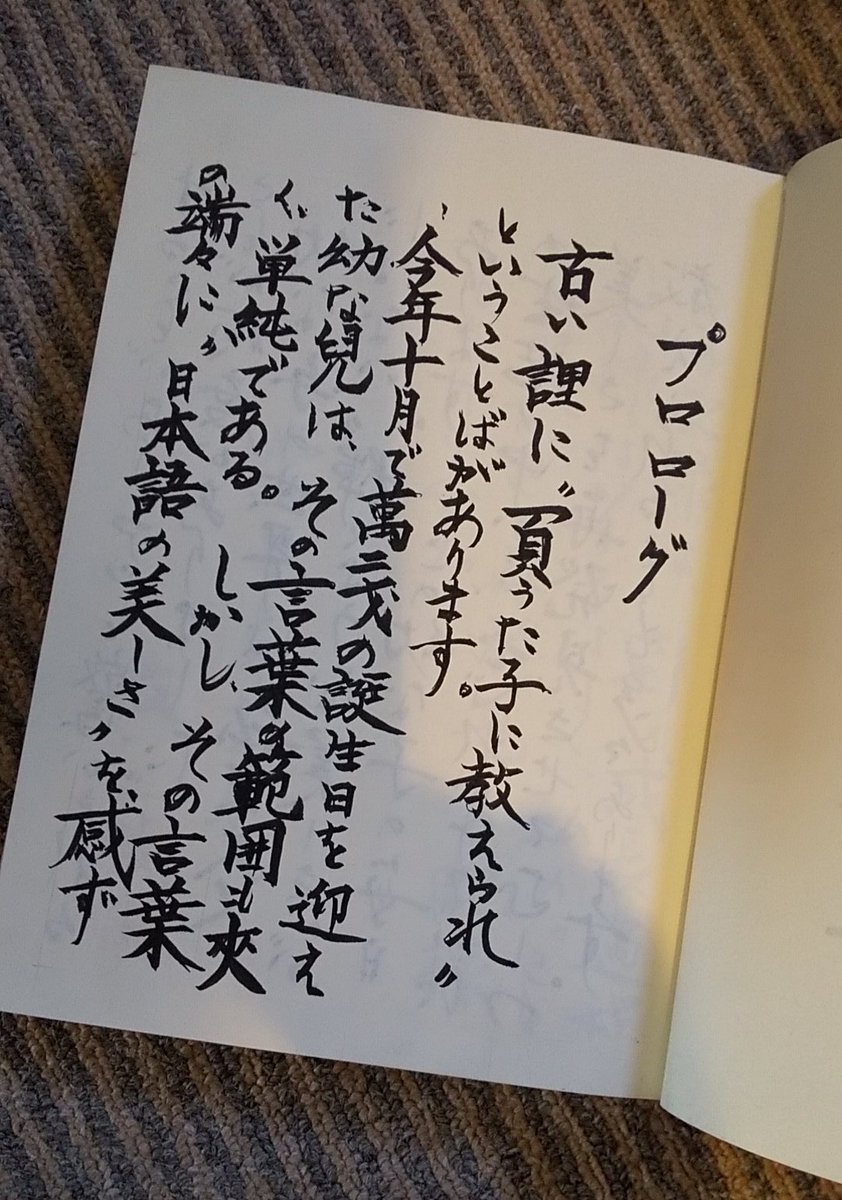 プロローグ
古い諺に〝負うた子に教えられ〟
ということばがあります。
、今年十月で萬三才の誕生日を迎え
た幼な兒は、その言葉の範囲も夾
く、単純である。しかし、その言葉
の端々に〝日本語の美しさ〟を、感ず